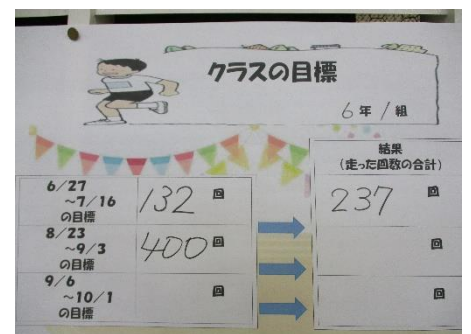 クラスの目標
6年1組
結果
(走った回数の合計)
6/27
~7/16
の目標
132回
237回
8/23
~9/3
の目標
400回
回
9/6
~10/1
の目標
回
回